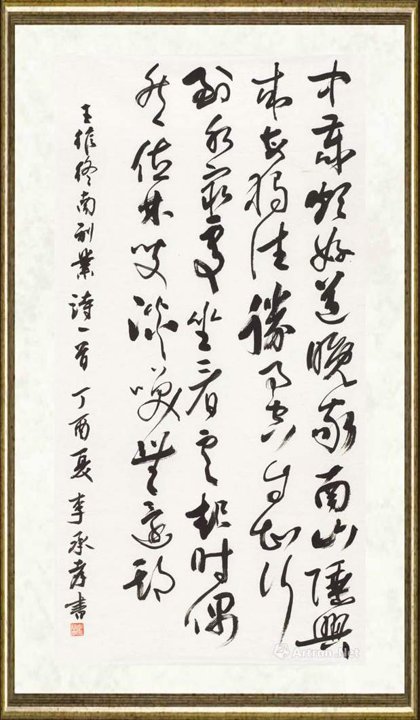 中歲頗好道晚家南山陲興
來每獨往勝事空自知行
到水窮處坐看雲起时偶
然值林叟談笑無還期
王維終南别業诗一首 丁酉夏 李承孝書
Artron.Net